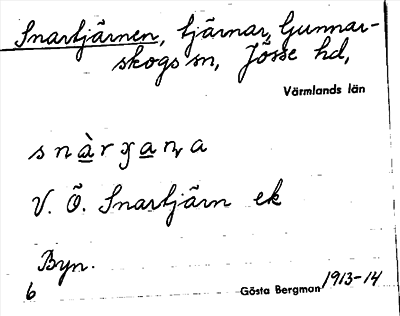 Snartjärnen, tjärnar, Gunnar-
skogs sn, Jösse hd,
Värmlands län
V. Ö. Snartjärn ek
Byn.
6
Gösta Bergman 1913-14